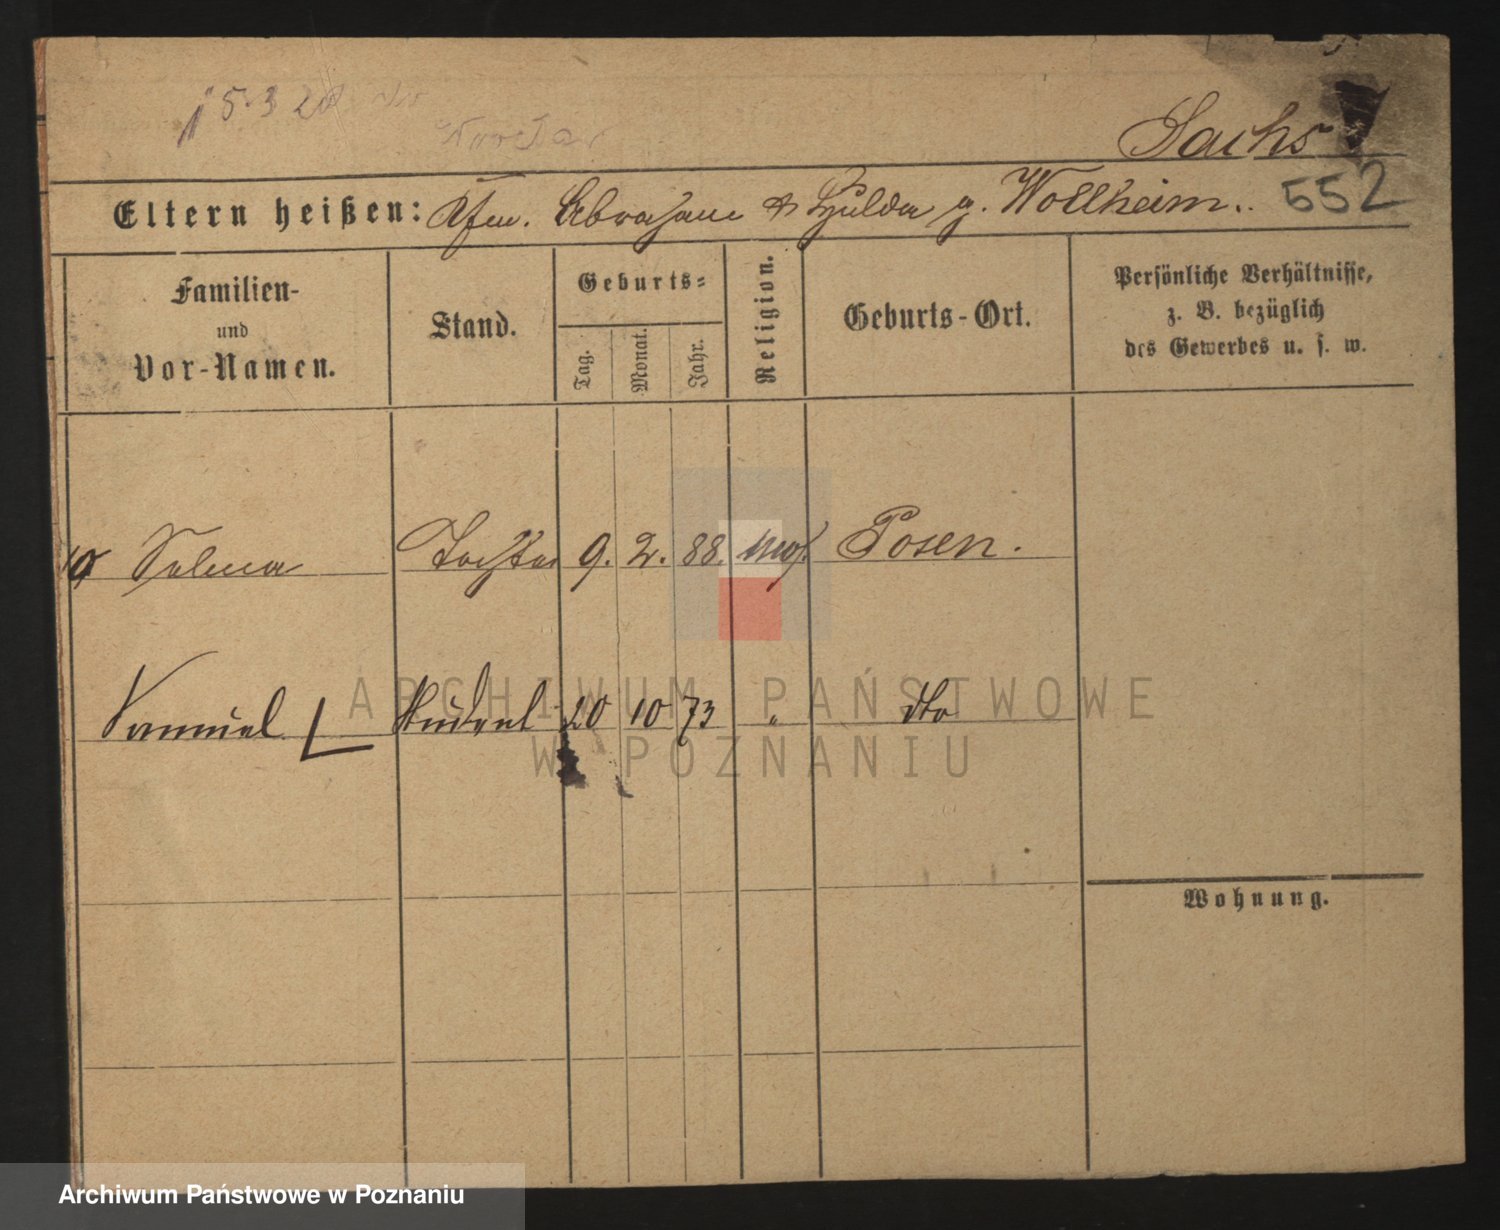 5.3 20
Sachs
552
Eltern heißen: Kfm. Abraham & Hulda g. Wollheim.
Familien-
und
Vor-Namen.
Stand.
Geburts=
Tag.
Monat.
Jahr.
Religion.
Geburts-Ort.
Persönliche Verhältnisse,
z. B. bezüglich
des Gewerbes u. s. w.
10 Selma Tochter 9. 2. 88. mos. Posen.
Samuel Student 20 10 73 " dto
Wohnung.
ARCHIWUM PAŃSTWOWE
W POZNANIU
Archiwum Państwowe w Poznaniu